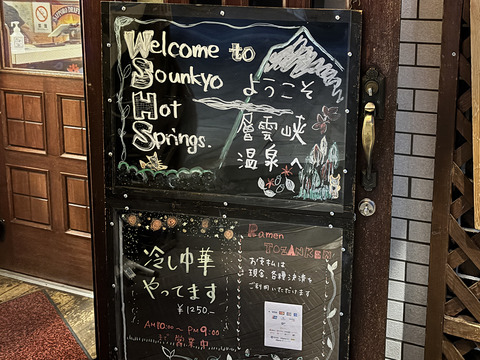 Welcome to
Sounkyo
Hot
Springs.
ようこそ
層雲峡
温泉へ
冷し中華
やってます
¥1250-
AM10:30~PM9:00
営業中
Ramen
TOZANKEN
お支払は
現金、各種決済を
ご利用いただけます